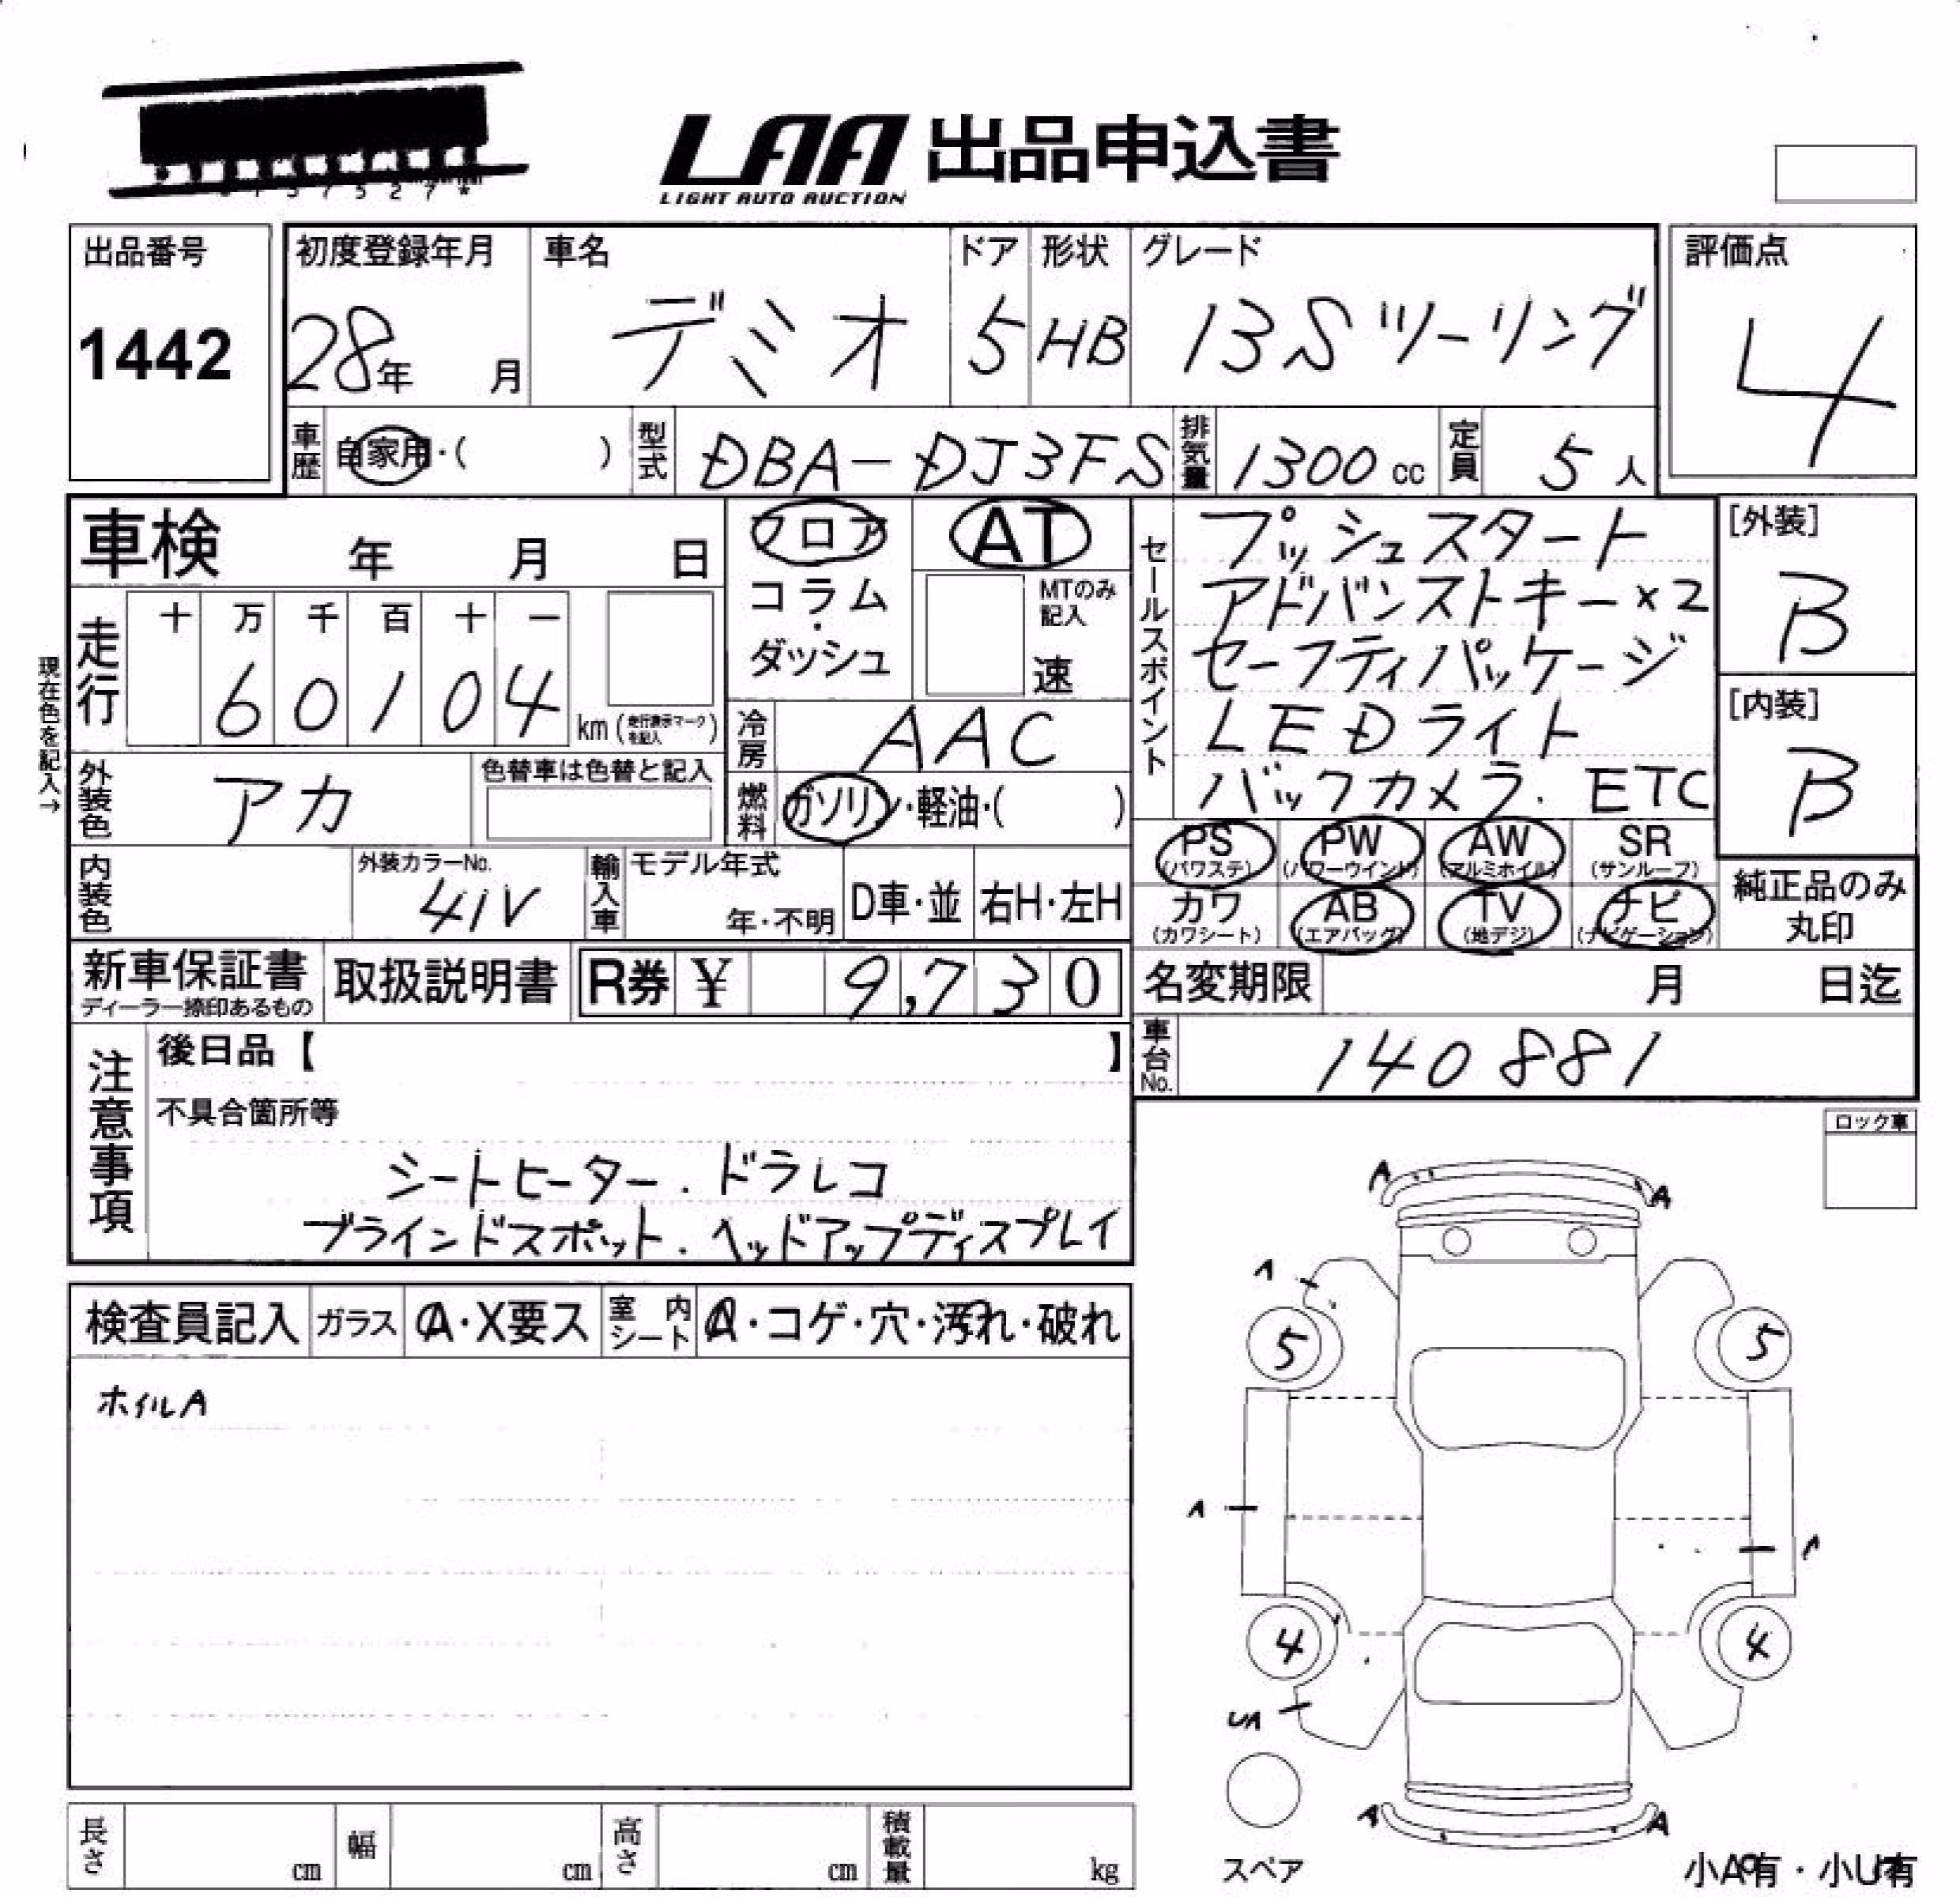 LAA 出品申込書
LIGHT AUTO AUCTION
出品番号
1442
初度登録年月
28年 月
車名
デミオ
ドア
5
形状
HB
グレード
13Sツーリング
評価点
4
車歴 自家用・( )
型式 DBA-DJ3FS
排気量 1300 cc
定員 5 人
車検 年 月 日
フロア
コラム
・
ダッシュ
AT
MTのみ記入
速
走行
十 万 千 百 十 一
6 0 1 0 4
km (走行表示マークを記入)
現在色を記入→
冷房 AAC
燃料 ガソリン・軽油・( )
外装色 アカ
色替車は色替と記入
内装色
外装カラーNo.
41V
輸入車 モデル年式
年・不明
D車・並 右H・左H
セールスポイント
プッシュスタート
アドバンストキー×2
セーフティパッケージ
LEDライト
バックカメラ. ETC
[外装]
B
[内装]
B
PS (パワステ) PW (パワーウインド) AW (アルミホイル) SR (サンルーフ)
カワ (カワシート) AB (エアバッグ) TV (地デジ) ナビ (ナビゲーション)
純正品のみ
丸印
新車保証書
ディーラー捺印あるもの
取扱説明書
R券 ¥ 9,730
名変期限 月 日迄
車台No. 140881
注意事項
後日品【 】
不具合箇所等
シートヒーター . ドラレコ
ブラインドスポット . ヘッドアップディスプレイ
ロック車
検査員記入 ガラス A・X要ス 室内シート A・コゲ・穴・汚れ・破れ
ホイルA
A A
A
5 5
A A
4 4
UA
A A
スペア
小A有・小U有
長さ cm 幅 cm 高さ cm 積載量 kg